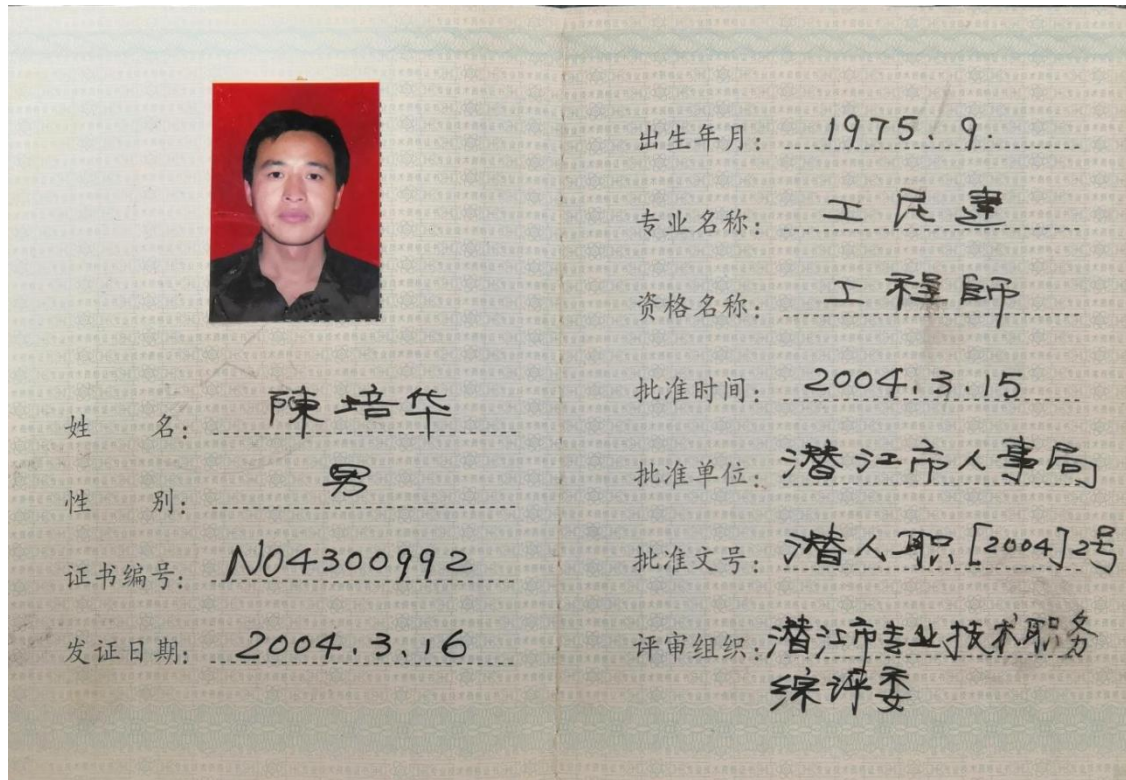 姓 名: 陳培华
性 别: 男
证书编号: N04300992
发证日期: 2004.3.16
出生年月: 1975.9.
专业名称: 工民建
资格名称: 工程師
批准时间: 2004.3.15
批准单位: 潜江市人事局
批准文号: 潜人职[2004]2号
评审组织: 潜江市专业技术职务
综评委